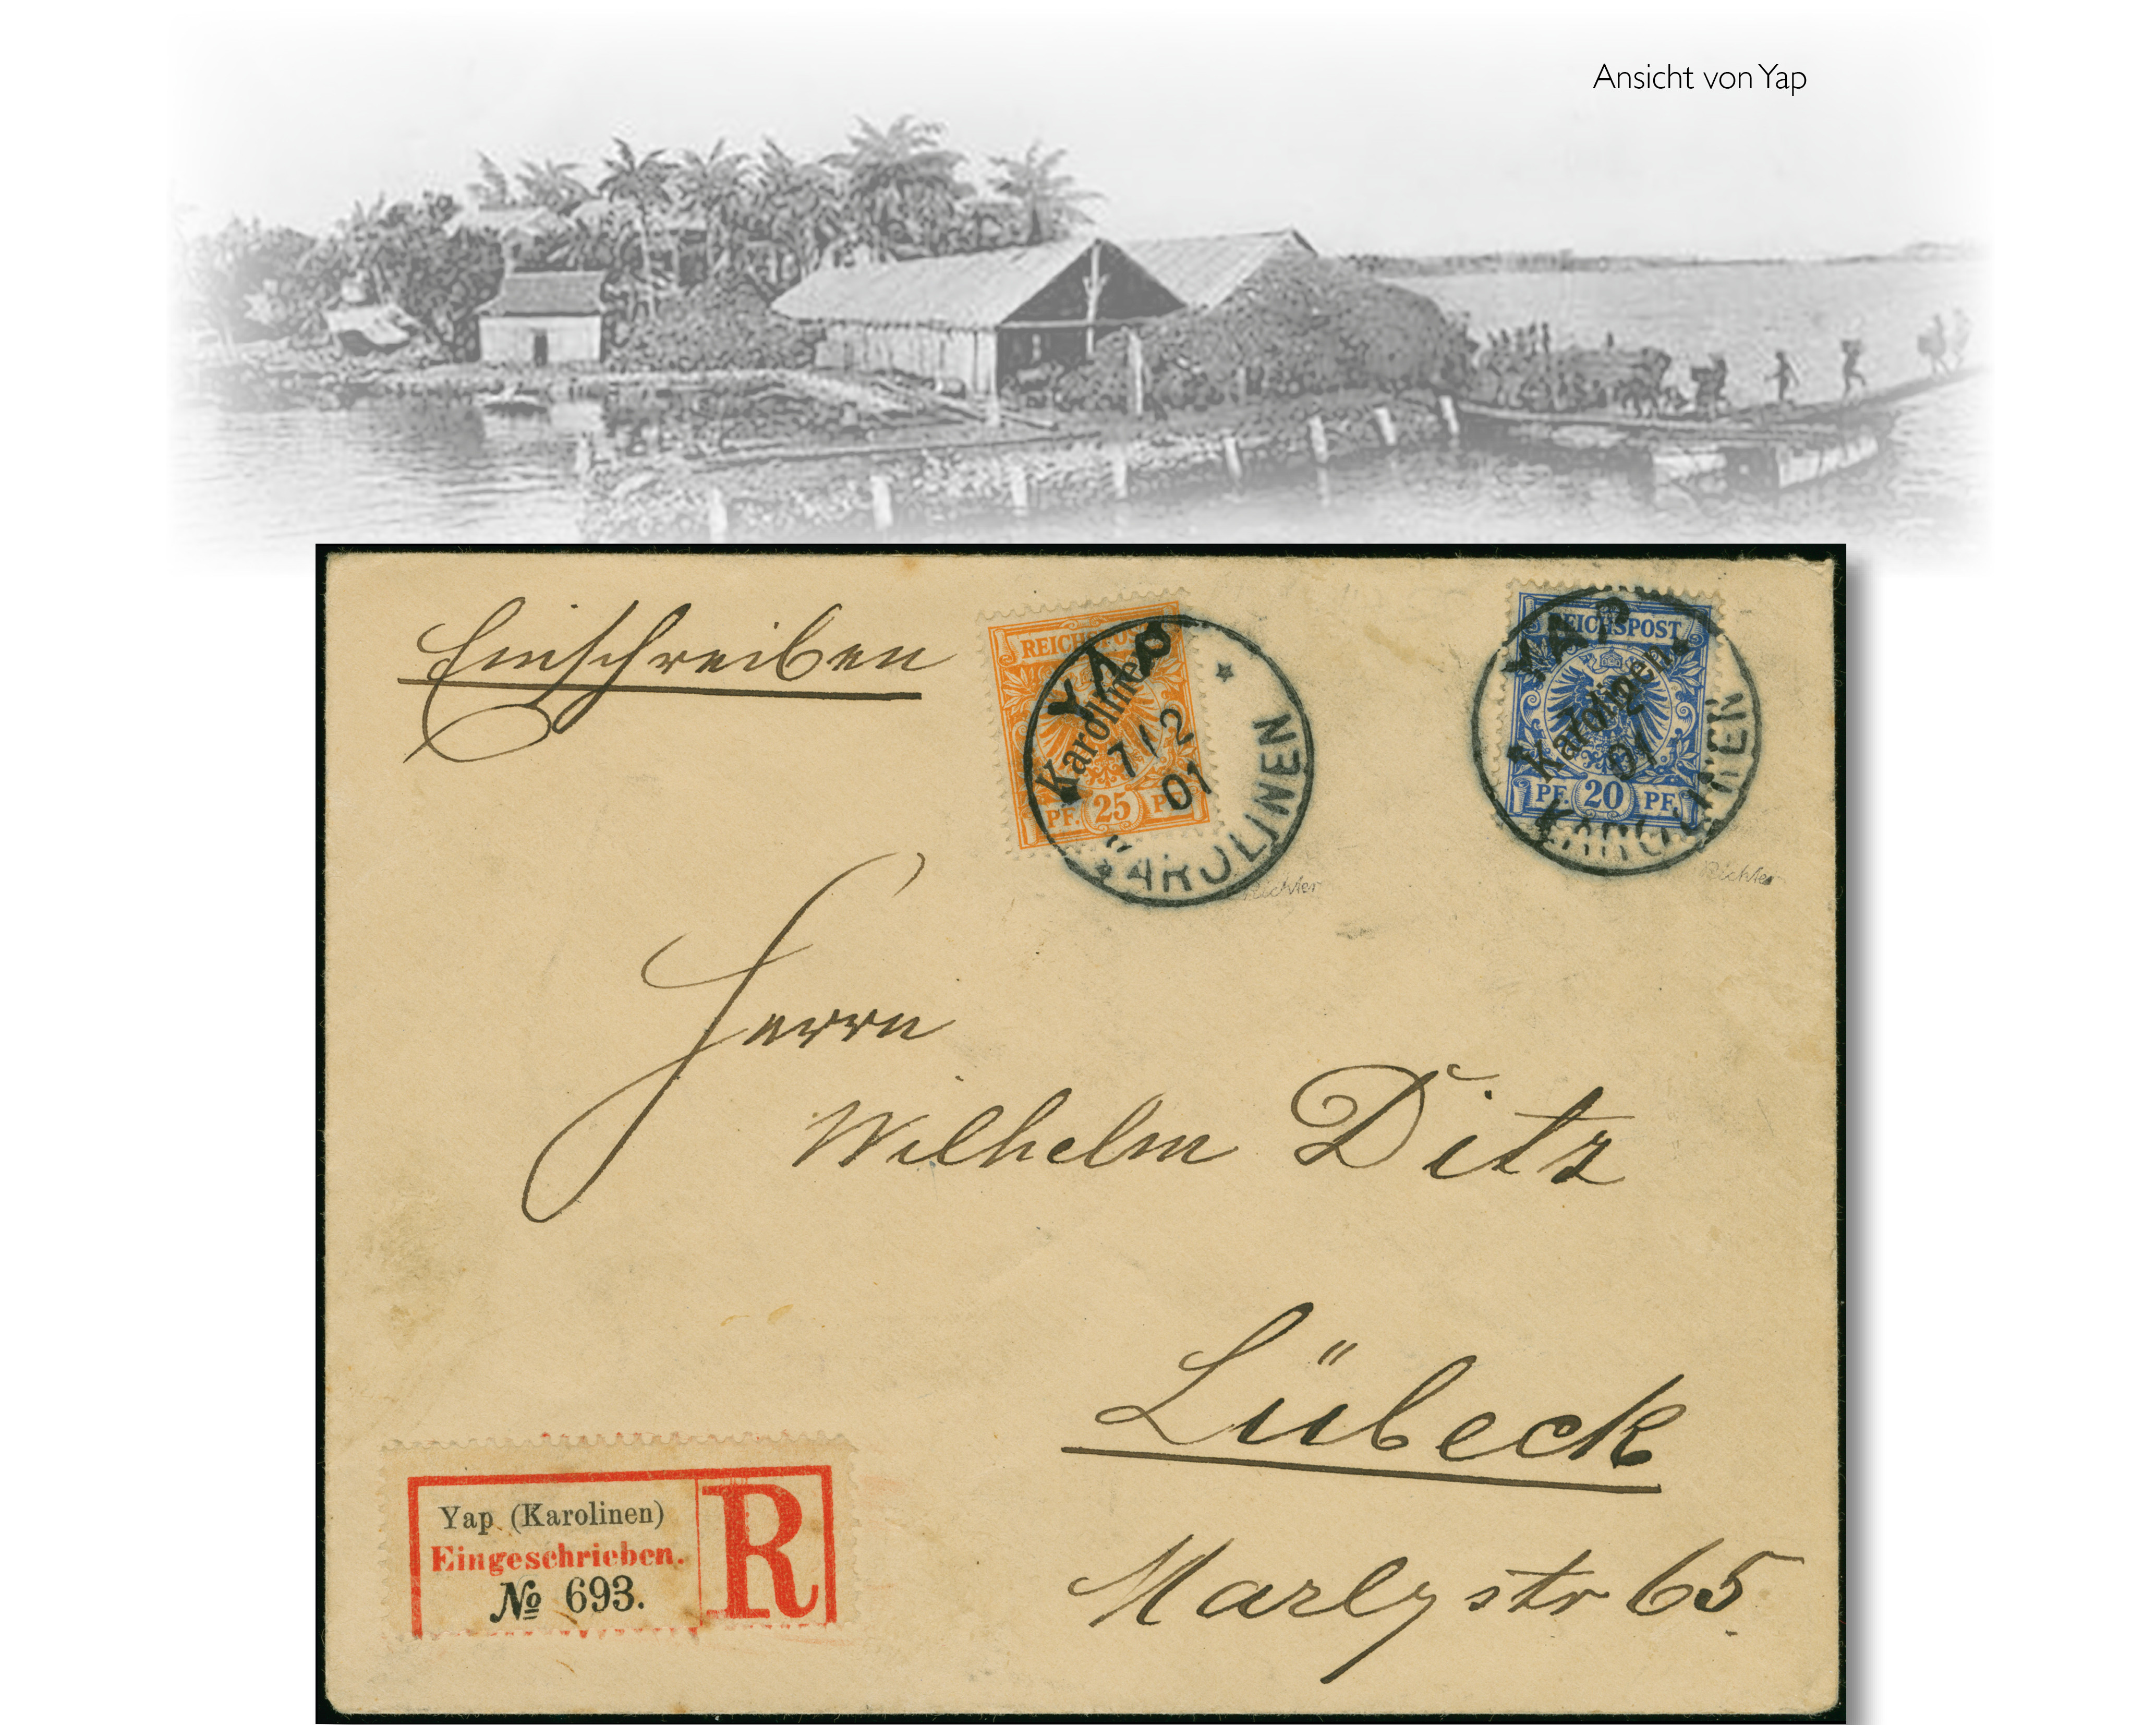 Ansicht von Yap
Einschreiben
REICHSPOST
Karolinen
PF. 25 PF.
YAP
7/12
01
KAROLINEN
REICHSPOST
Karolinen
PF. 20 PF.
YAP
01
KAROLINEN
Richter
Richter
Herrn
Wilhelm Ditz
Lübeck
Marlystr 65.
Yap (Karolinen)
Eingeschrieben.
№ 693.
R